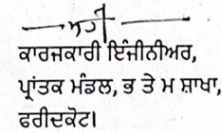 ਸਹੀ
ਕਾਰਜਕਾਰੀ ਇੰਜੀਨੀਅਰ,
ਪ੍ਰਾਂਤਕ ਮੰਡਲ, ਭ ਤੇ ਮ ਸ਼ਾਖਾ,
ਫਰੀਦਕੋਟ।